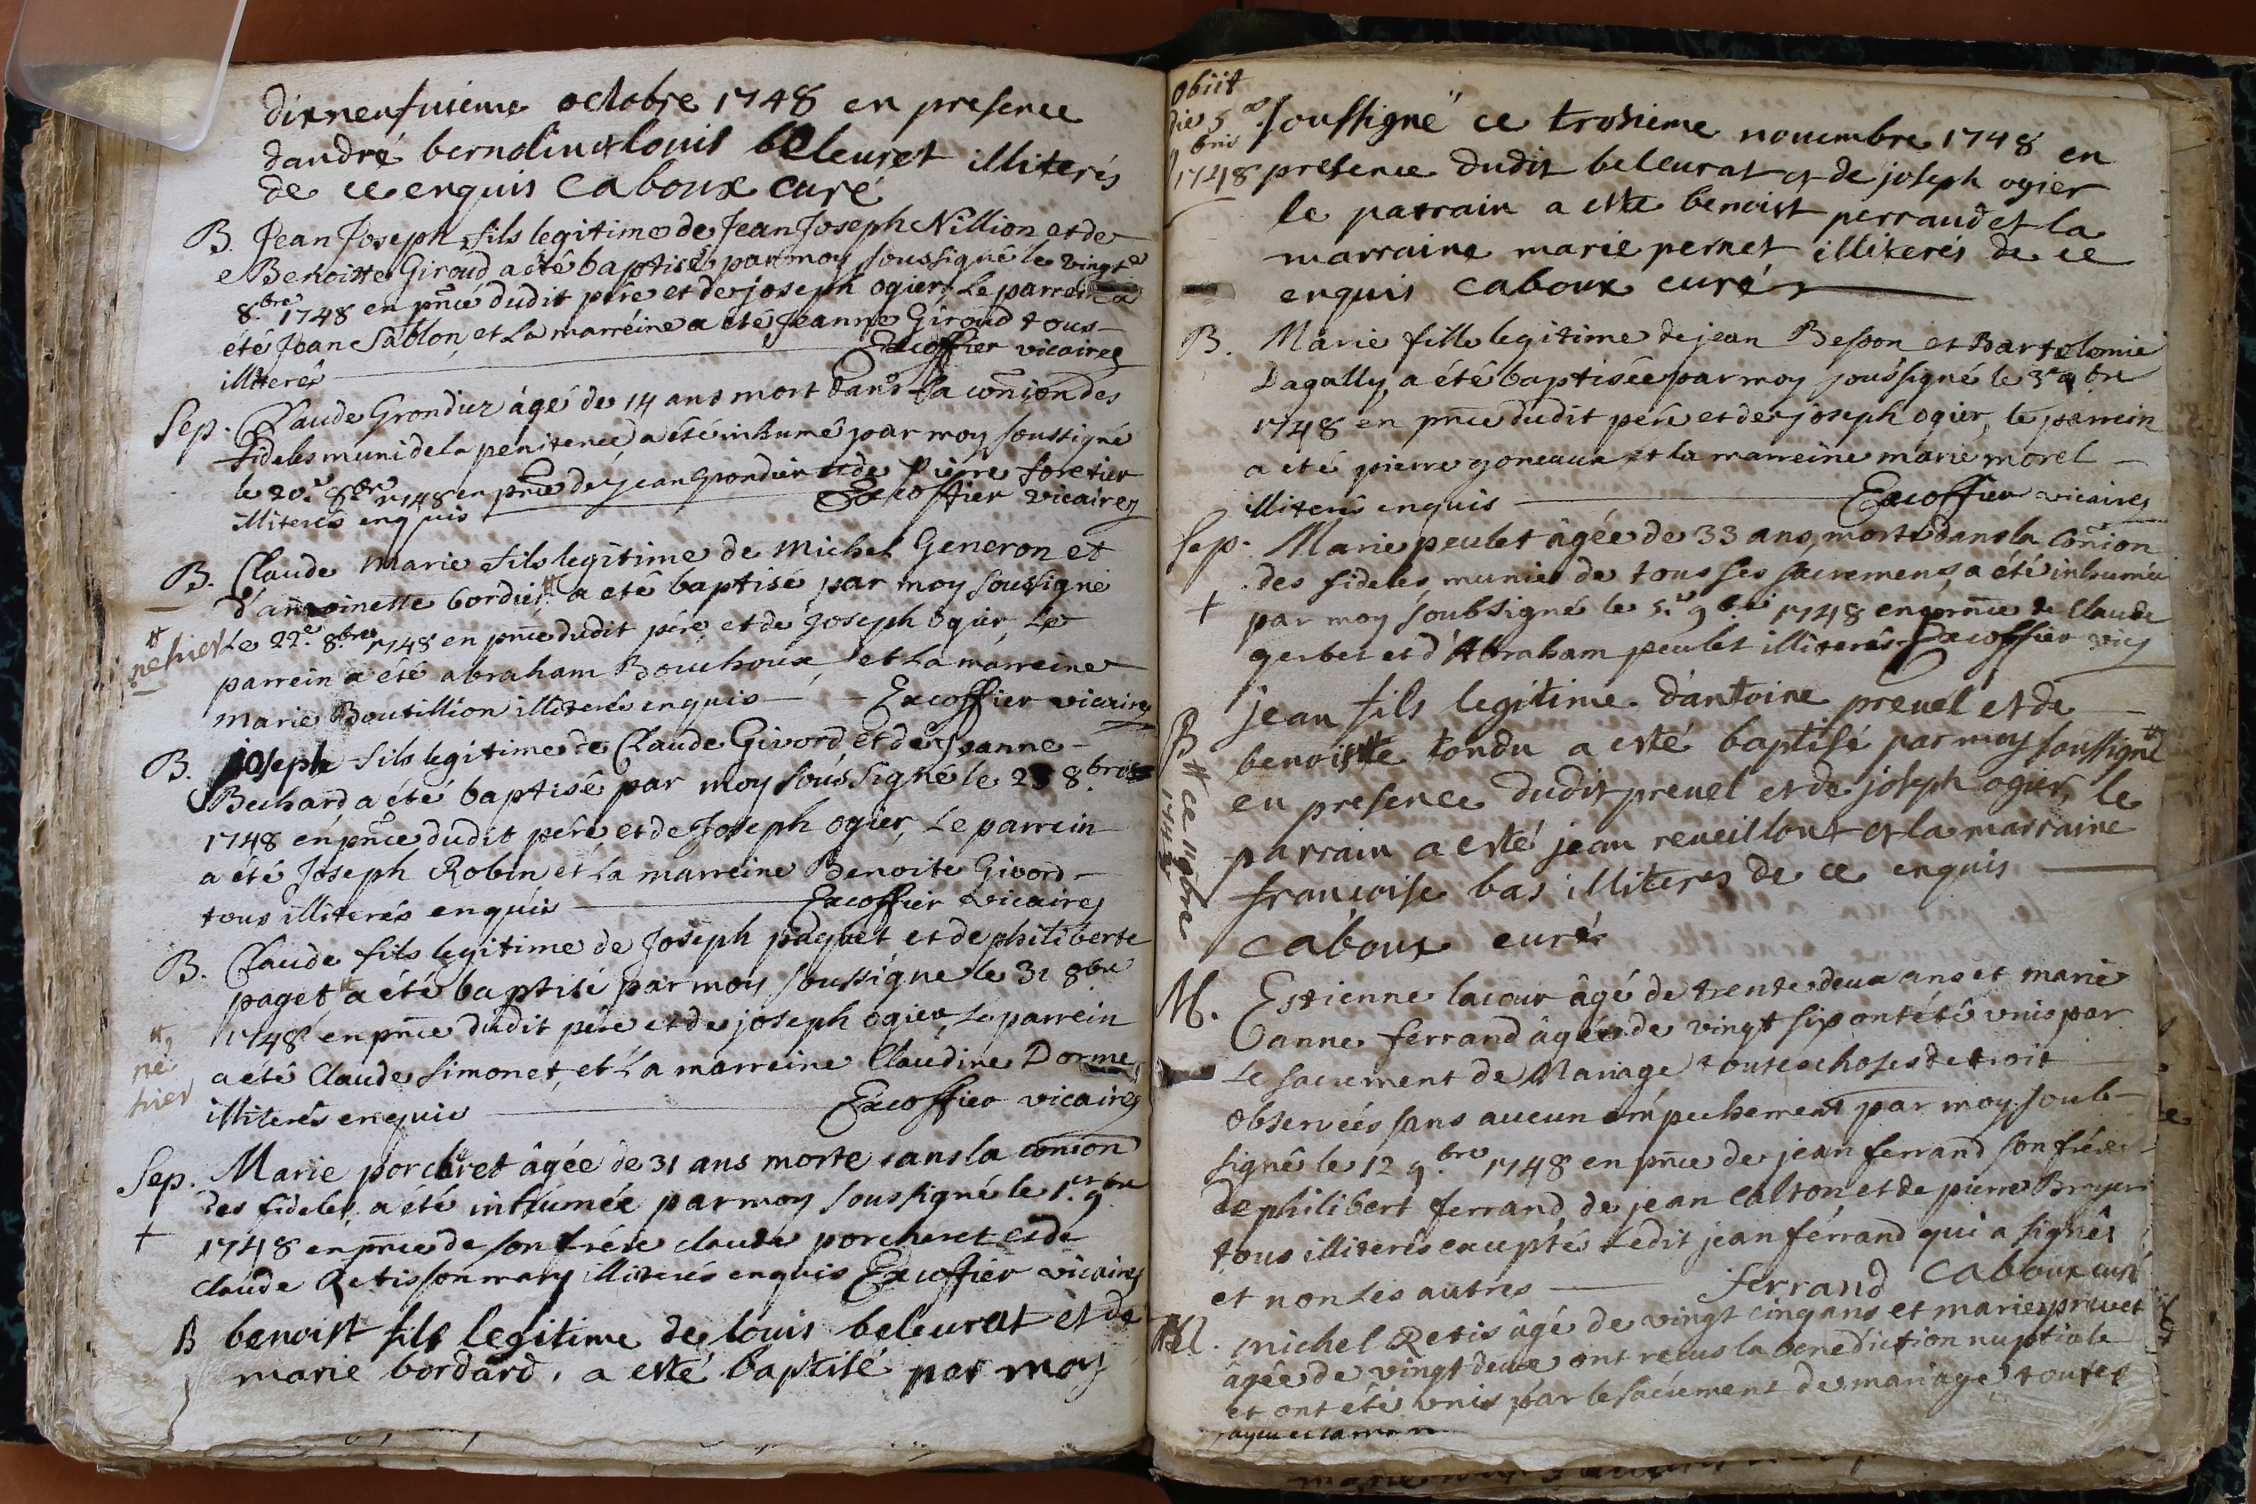 dixneufuieme octobre 1748 en presence
dandré bernolin et louis beleuret illiterés
de ce enquis Caboux curé
B. Jean Joseph fils legitime de Jean Joseph Nillion et de
Benoitte Giroud a été baptisé par moy soussigné le vingt
8.bre 1748 en pnce dudit pére et de joseph ogier, Le parrein a
été Jean Sablon, et La marréine a été Jeanne Giroud tous
illiterés Excoffier vicaire
Sep. Claude Grondier âgé de 14 ans mort dans la conion des
fideles muni de la penitence, a été inhumé par moy soussigné
le 20.e 8bre 1748 en pnce de jean grondier et de Pierre foretier
illiterés enquis Excoffier vicaire
B. Claude Marie fils legitime de Michel Generon et
d'antoinette bordier # a eté baptisé par moy soussigné
# né hier Le 22.e 8.bre 1748 en pnce dudit pére, et de Joseph Ogier, Le
parrein a été abraham Bouchoux, et La marreine
Marie Boutillion illiterés enquis Excoffier vicaire
B. joseph fils legitime de Claude Givord et de Jeanne
Buchard, a été baptisé par moy soussigné le 23 8.bre
1748 en pnce dudit pére et de Joseph ogier, Le parrein
a été Joseph Robin et La marreine Benoite Givord
tous illiterés enquis Excoffier vicaire
B. Claude fils legitime de Joseph paquet et de philiberte
paget # a été baptisé par moy soussigné le 31 8bre
1748 en pnce dudit pére et de joseph ogier, Le parrein
# né hier a été Claude Simonet, et La marreine Claudine Dorme
illiterés enquis Excoffier vicaire
Sep. Marie porcheret âgée de 31 ans morte dans la conion
des fideles, a eté inhumée par moy soussigné le 1.er 9.bre
+ 1748 en pnce de son frére claude porcheret et de
Claude Retis son mary illiterés enquis Excoffier vicaire
B benoist fils legitime de louis beleurat et de
marie bordard, a esté baptisé par moy
obiit
die 5
9bris
1748
soussigné ce troisieme nouembre 1748 en
presence dudit beleurat et de joseph ogier
le parrain a esté benoist perraud et la
marraine marie pernet illiterés de ce
enquis caboux curé
B. Marie fille legitime de jean Besson et Bartelomie
Dagally, a été baptisée par moy soussigné le 3e 9bre
1748 en pnce dudit pére et de joseph ogier, le parrein
a eté pierre goneaux et la marreine marie morel
illiterés enquis Excoffier vicaire
Sep. Marie peulet âgée de 33 ans, morte dans la conion
des fideles, munie de tous ses sacremens, a été inhumée
+ par moy soubsigné le 5.e 9bre 1748 en pnce de Claude
gerbet et d'Abraham peulet illiterés Excoffier vic
jean fils legitime d'antoine preuel et de
benoiste tondu a esté baptisé par moy soussigné #
B # ce 11 9bre 1748
en presence dudit preuel et de joseph ogier, le
parrain a esté jean reueillout et la marraine
françoise bas illiteres de ce enquis
caboux curé
M. Estienne lacour âgé de trente deux ans et marie
anne ferrand âgée de vingt six ont été unis par
Le sacrement de Mariage toutes choses de droit
observées sans aucun empechement par moy soub-
signé le 12 9.bre 1748 en pnce de jean ferrand son frére
de philibert ferrand de jean Calton, et de pierre Bruyere
tous illiterés excepté ledit jean ferrand qui a signé
et non Les autres ferrand Caboux curé
M. michel Retis âgé de vingt cinq ans et marie preuet
âgée de vingt deux ont recus la benediction nuptiale
et ont été unis par le sacrement de mariage, toutes